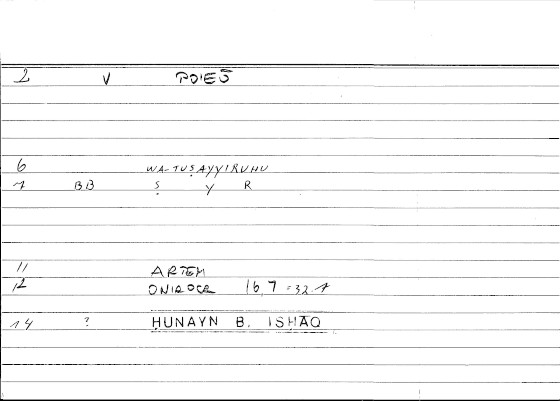 2 V POIEŌ
6 WA-TUṢAYYIRUHU
1 BB Ṣ Y R
11 ARTEM
12 ONIROCR 16,7 = 32.1
14 ? ḤUNAYN B. ISḤĀQ